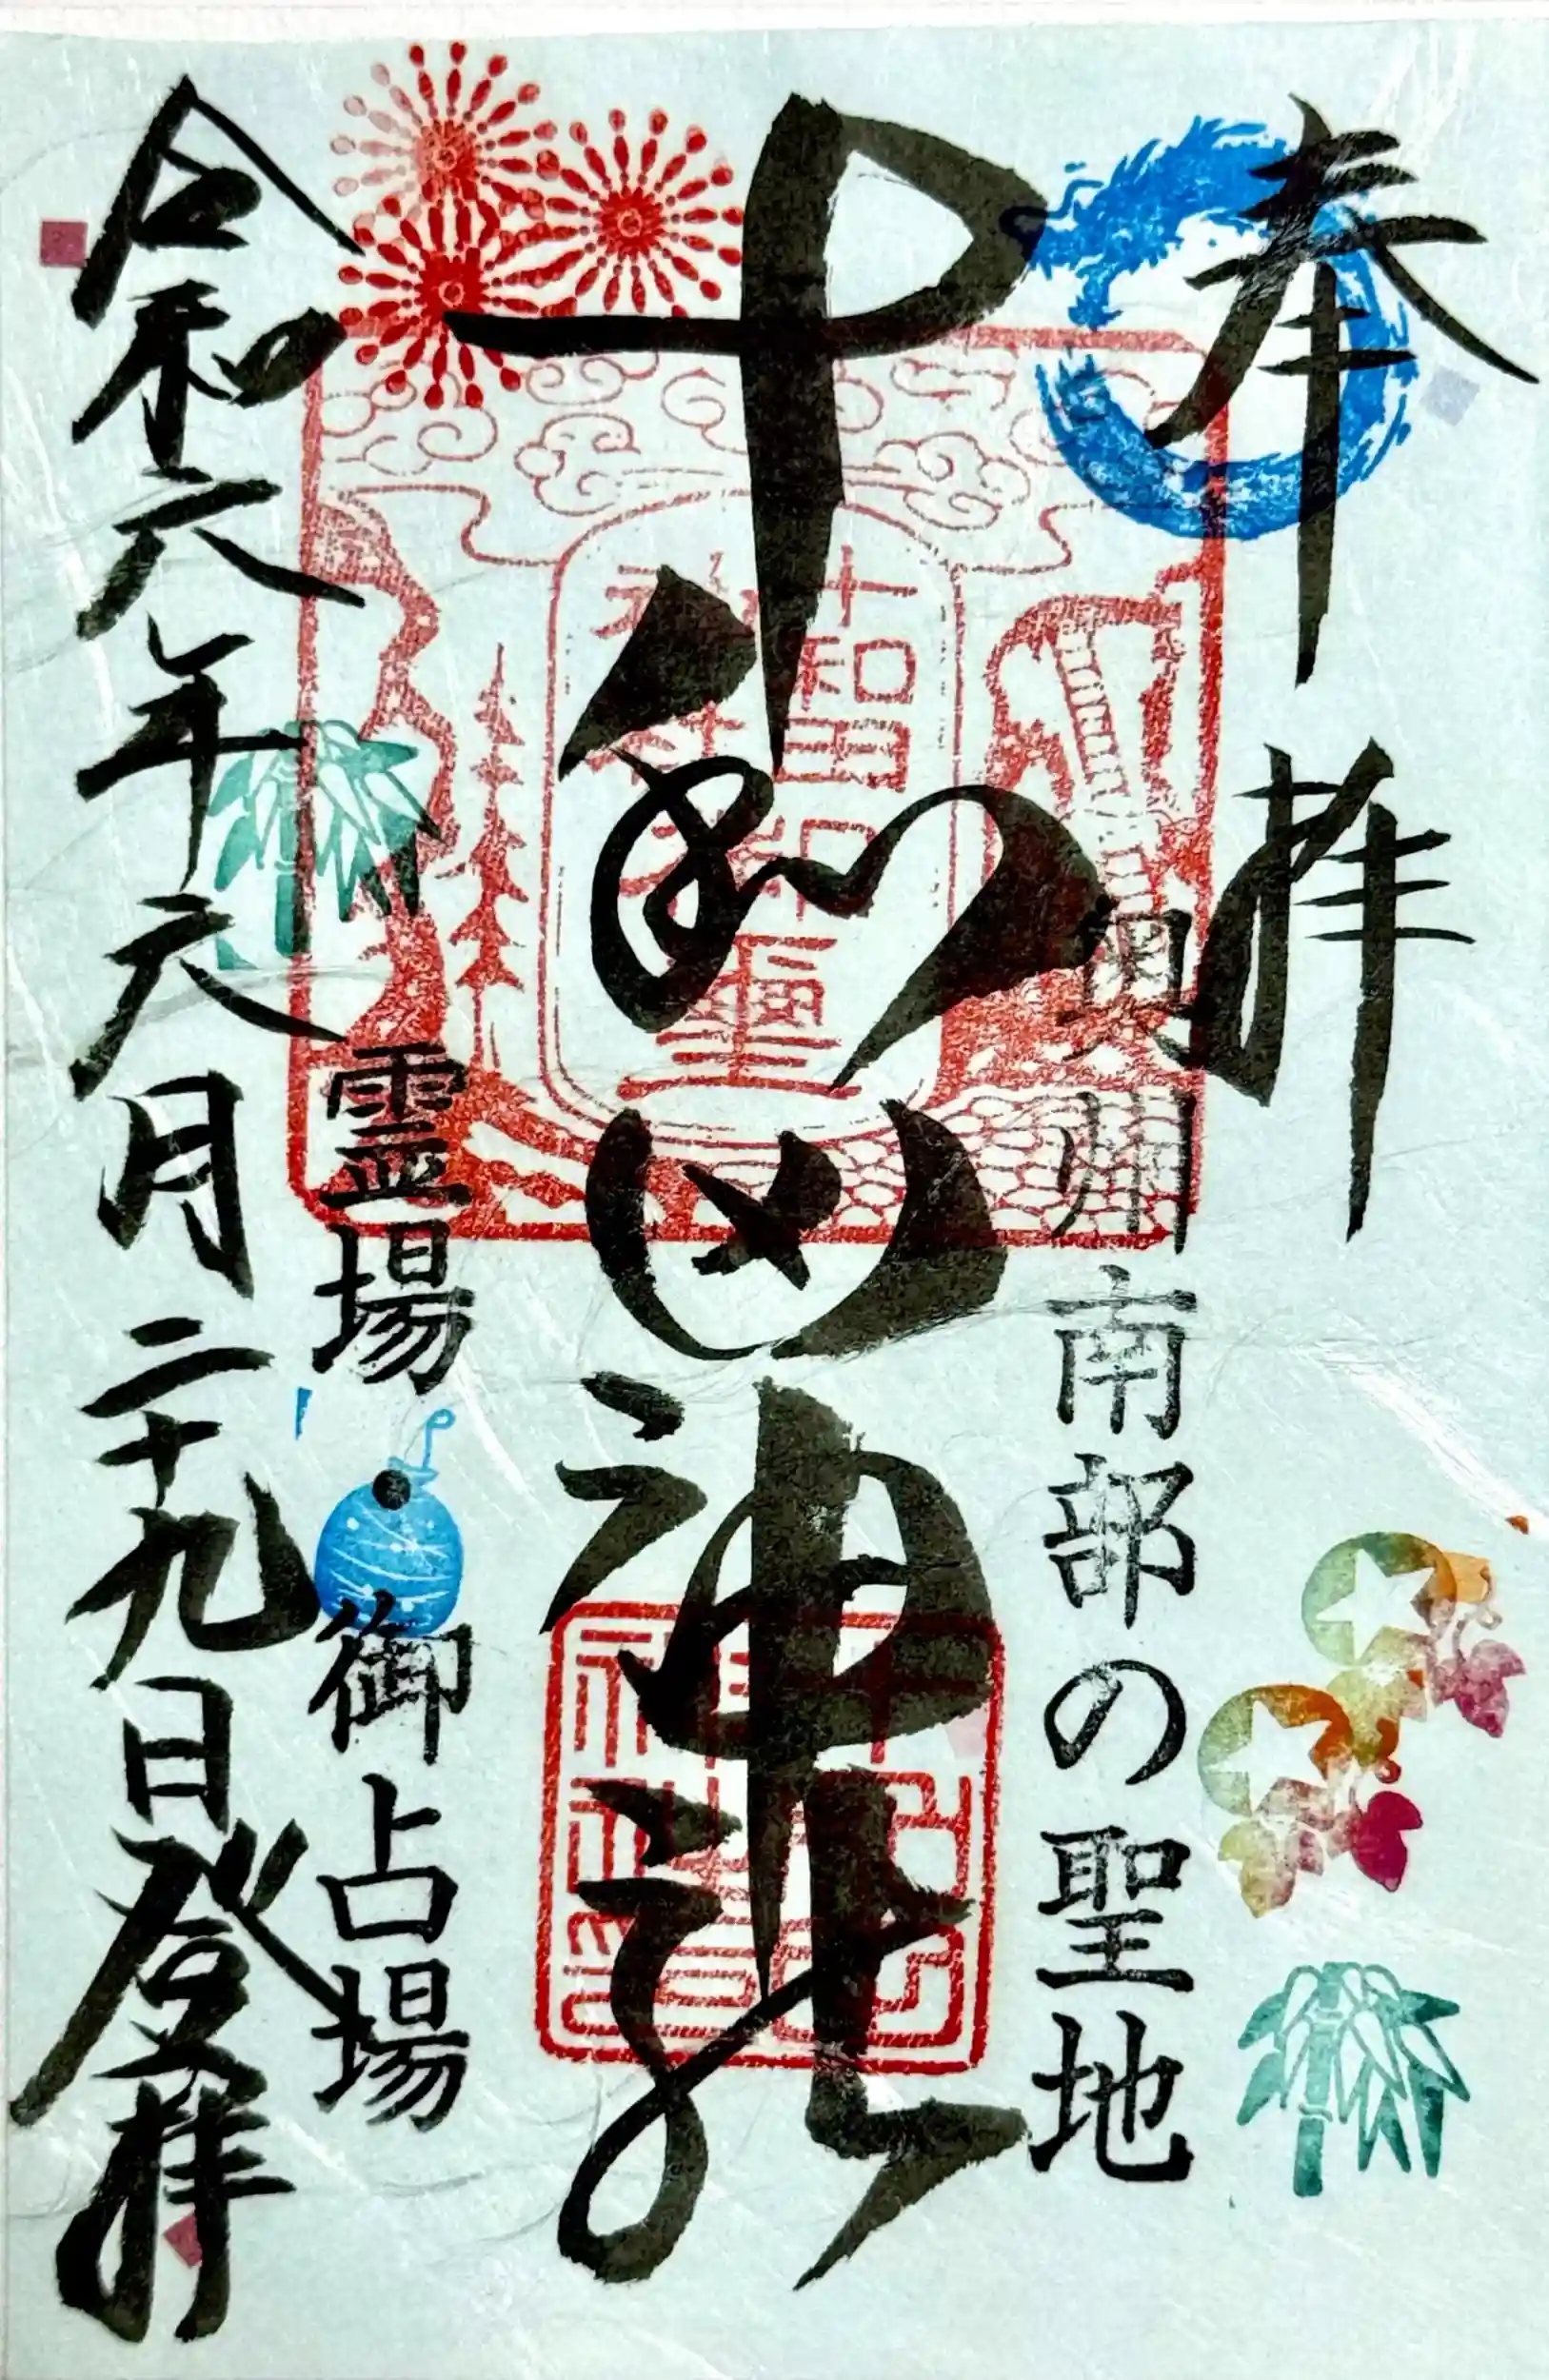 奉拝
奥州南部の聖地
十和田神社
十和田
神社
霊場 御占場
令和六年六月二十九日登拝